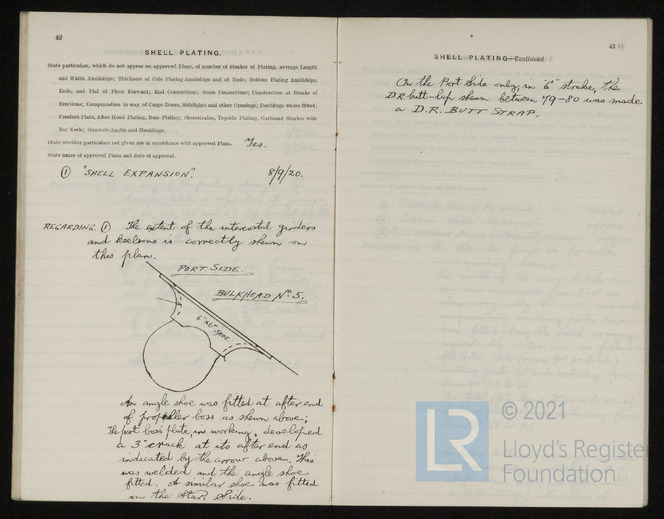 42
SHELL PLATING.
State particulars, which do not appear on approved Plans, of number of Strakes of Plating, average Length
and Width Amidships; Thickness of Side Plating Amidships and at Ends; Bottom Plating Amidships,
Ends, and Flat of Floor Forward; End Connections; Seam Connections; Construction at Breaks of
Erections; Compensation in way of Cargo Doors, Sidelights and other Openings; Doublings where fitted;
Forefoot Plate, After Hood Plating, Boss Plating; Shoechocks, Topside Plating, Garboard Strakes with
Bar Keels; Gunwale Angles and Mouldings.
State whether particulars not given are in accordance with approved Plans. Yes.
State name of approved Plans and date of approval.
① "SHELL EXPANSION". 8/9/20.
REGARDING ① The extent of the intercostal girders
and keelsons is correctly shewn on
this plan.
PORT SIDE.
BULKHEAD No. 5.
6"x6" SHOE.
An angle shoe was fitted at after end
of propeller boss as shewn above;
The port boss plate, in working, developed
a 3" crack at its after end as
indicated by the arrow above. This
was welded and the angle shoe
fitted. A similar shoe was fitted
on the Star. Side.
43
SHELL PLATING—Continued.
On the Port Side only, in "E" strake, the
D.R. butt-lap shewn between 79-80 was made
a D.R. BUTT STRAP.
LR
© 2021
Lloyd's Register
Foundation